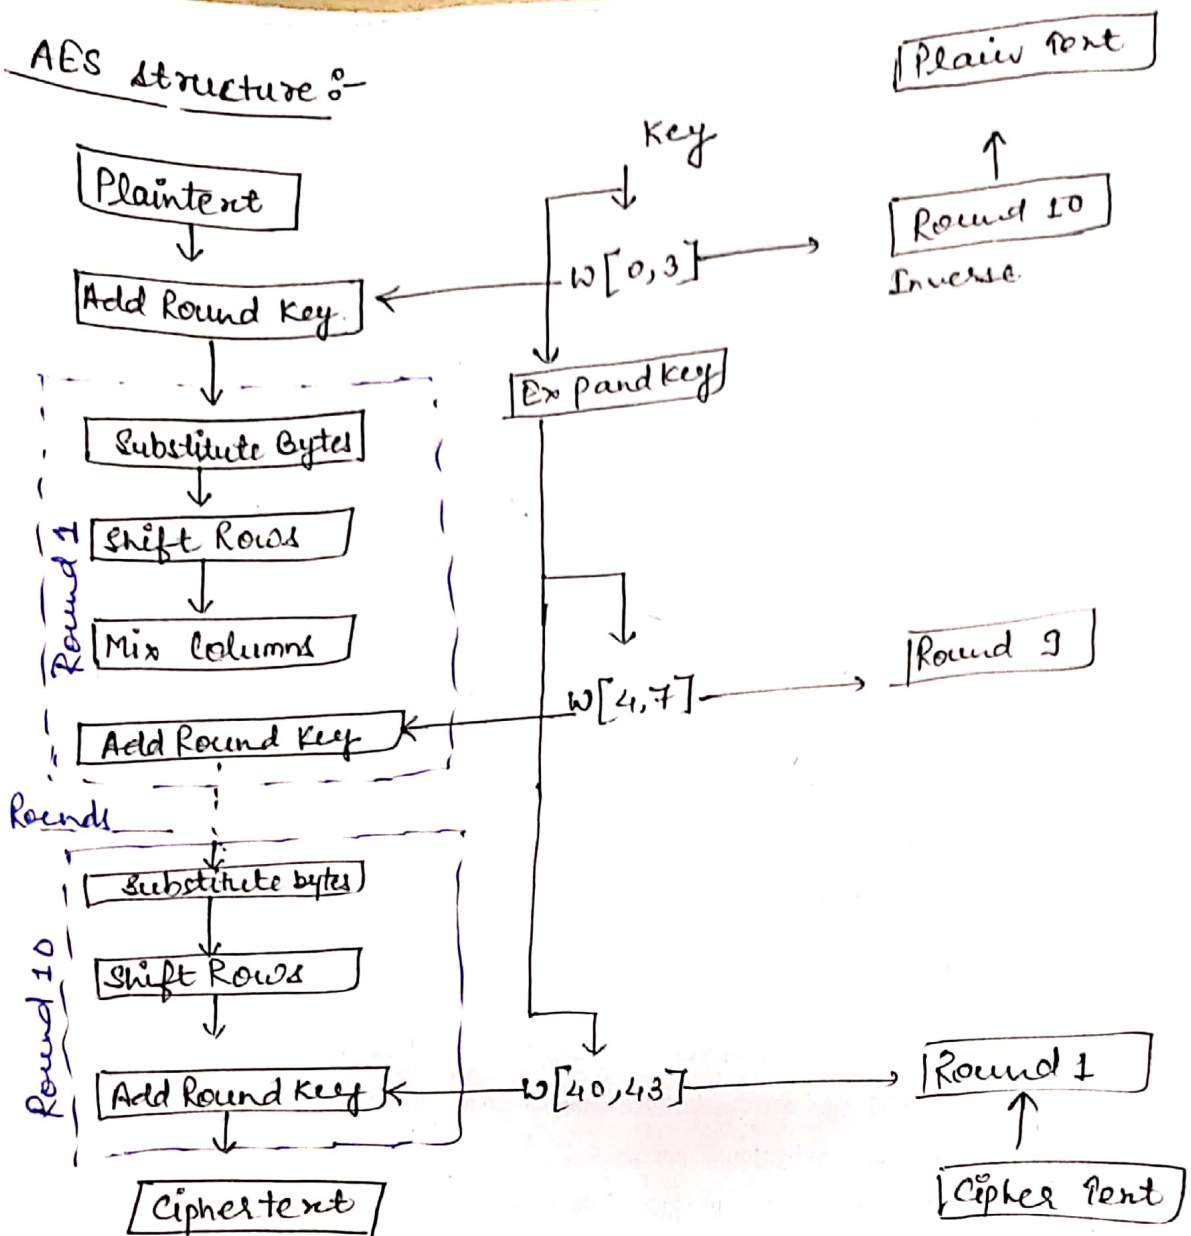 AES structure :-
Plaintext
Add Round Key.
Round 1
Substitute Bytes
Shift Rows
Mix Columns
Add Round Key
Rounds
Round 10
Substitute bytes
Shift Rows
Add Round Key
Ciphertext
Key
W[0,3]
Expand Key
W[4,7]
W[40,43]
Plain Text
Round 10
Inverse
Round 9
Round 1
Cipher Text